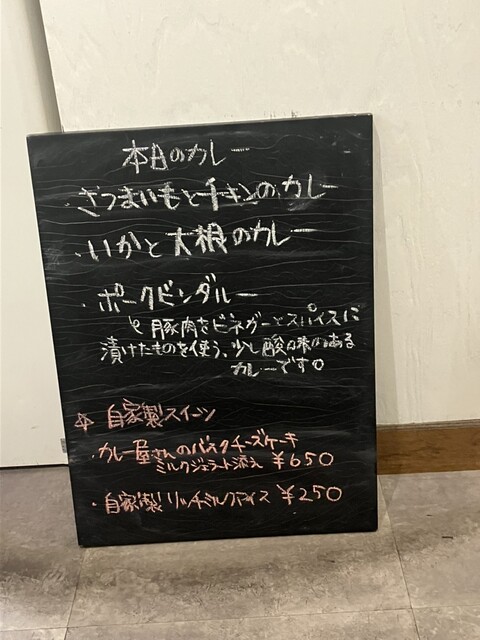 本日のカレー
・さつまいもとチキンのカレー
・いかと大根のカレー
・ポークビンダルー
豚肉をビネガーとスパイスに
漬けたものを使う、少し酸味のある
カレーです。
☆ 自家製スイーツ
・カレー屋さんのバスクチーズケーキ
ミルクジェラート添え ¥650
・自家製リッチミルクアイス ¥250